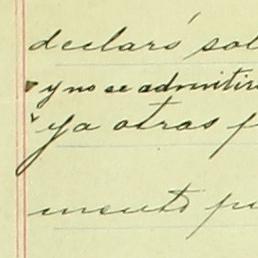 declaró sol
y no se admitir
ya otras p
mento pu